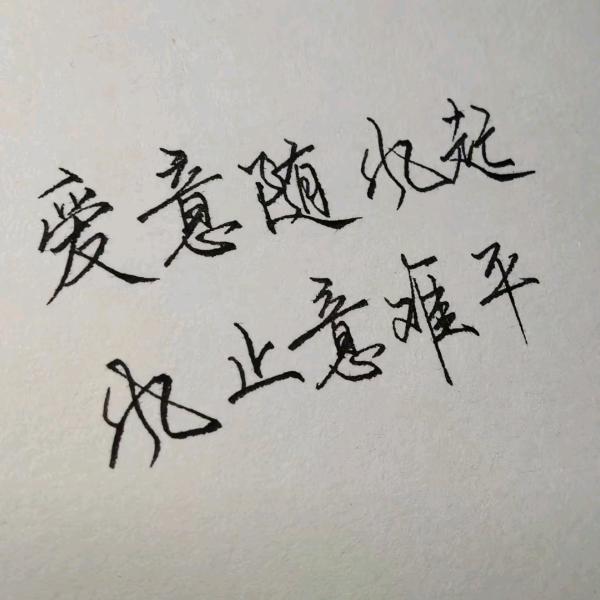 爱意随忆起
忆止意难平